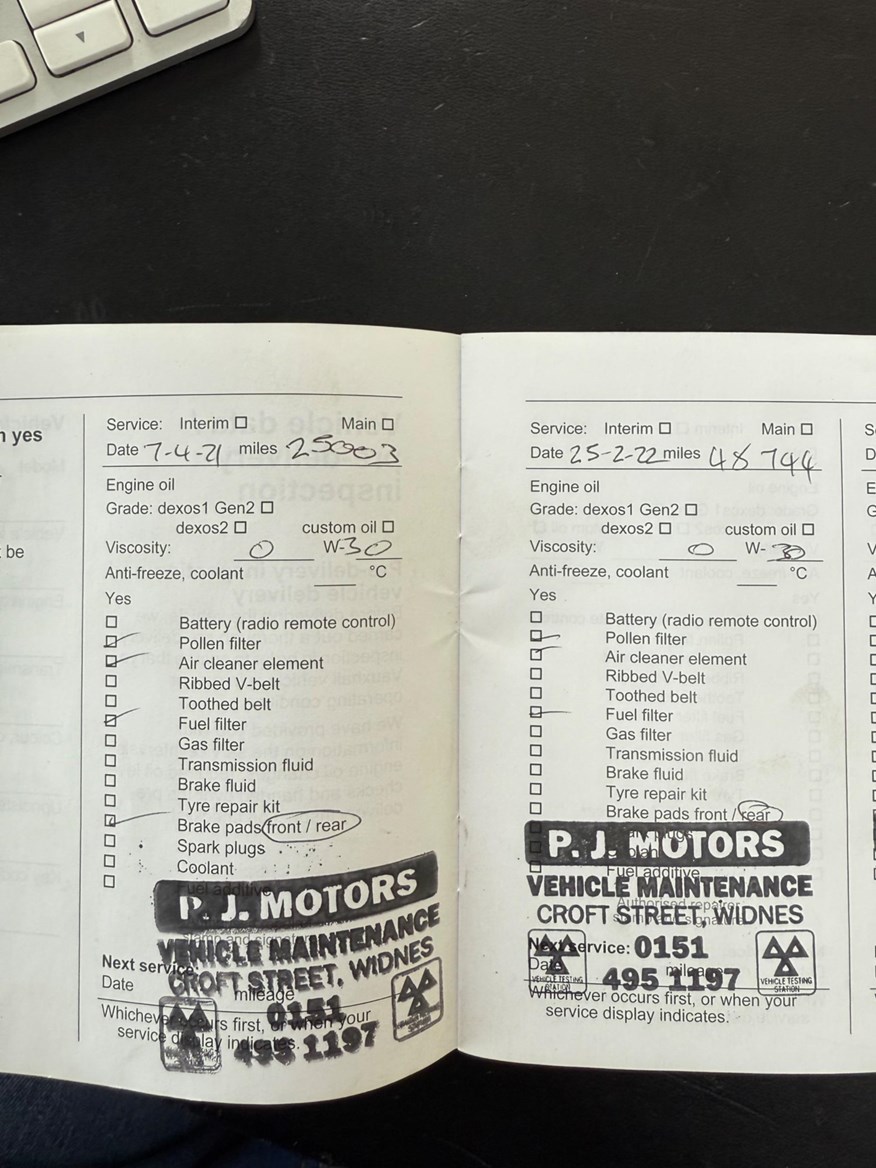 n yes
be
Service: Interim Main
Date 7-4-21 miles 25003
Engine oil
Grade: dexos1 Gen2
dexos2 custom oil
Viscosity: 0 W-30
Anti-freeze, coolant °C
Yes
Battery (radio remote control)
Pollen filter
Air cleaner element
Ribbed V-belt
Toothed belt
Fuel filter
Gas filter
Transmission fluid
Brake fluid
Tyre repair kit
Brake pads front / rear
Spark plugs
Coolant
Fuel additive
P. J. MOTORS
VEHICLE MAINTENANCE
CROFT STREET, WIDNES
0151
495 1197
Next service:
Date mileage
Whichever occurs first, or when your
service display indicates.
Service: Interim Main
Date 25-2-22 miles 48744
Engine oil
Grade: dexos1 Gen2
dexos2 custom oil
Viscosity: 0 W-30
Anti-freeze, coolant °C
Yes
Battery (radio remote control)
Pollen filter
Air cleaner element
Ribbed V-belt
Toothed belt
Fuel filter
Gas filter
Transmission fluid
Brake fluid
Tyre repair kit
Brake pads front / rear
Spark plugs
Coolant
Fuel additive
P. J. MOTORS
VEHICLE MAINTENANCE
Authorised repairer
CROFT STREET, WIDNES
Next service: 0151
Date mileage
495 1197
VEHICLE TESTING STATION
VEHICLE TESTING STATION
Whichever occurs first, or when your
service display indicates.
S
D
E
G
V
A
Y